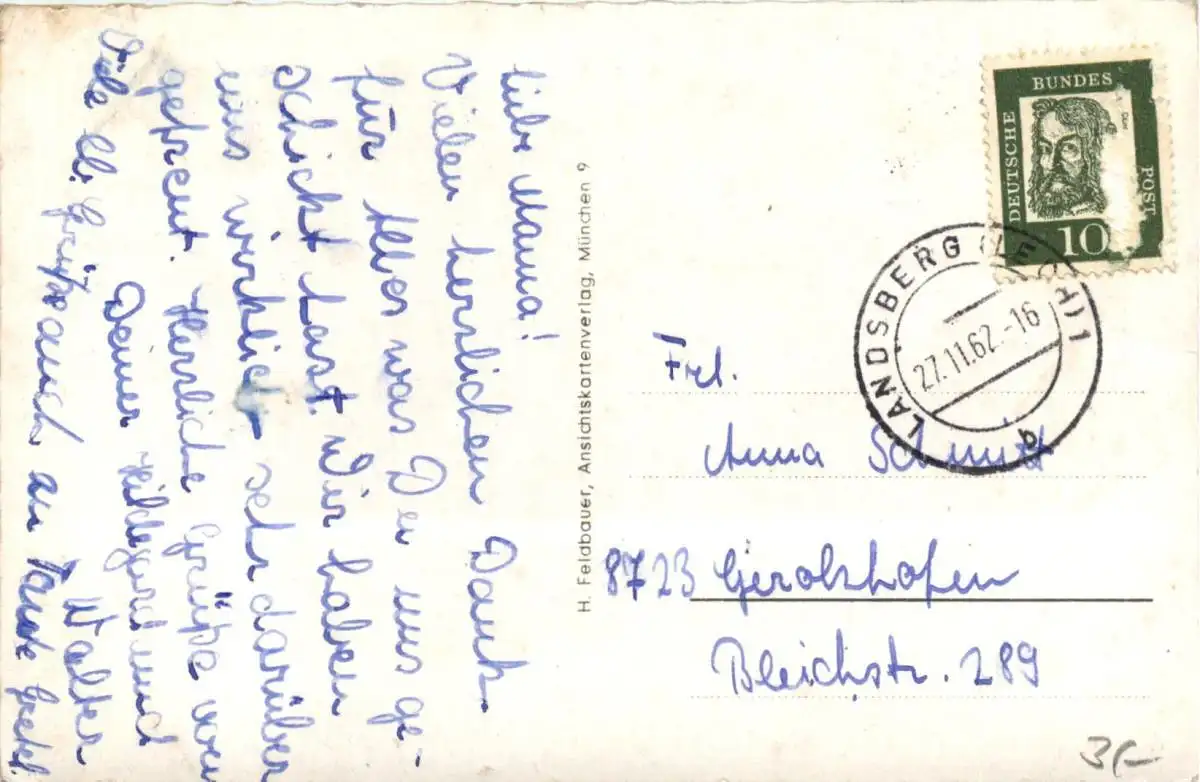 liebe Mama!
Vielen herzlichen Dank
für Alles was Du uns ge-
schickt hast. Wir haben
uns wirklich sehr darüber
gefreut. Herzliche Grüße von
Deiner Hildegard und
Walter
Viele lb. Grüße auch an Tante
H. Feldbauer, Ansichtskartenverlag, München 9
DEUTSCHE
BUNDES
POST
10
LANDSBERG (LECH) 1
27.11.62.-16
q
Frl.
Anna Schmitt
8723 Gerolzhofen
Bleichstr. 289
3/-